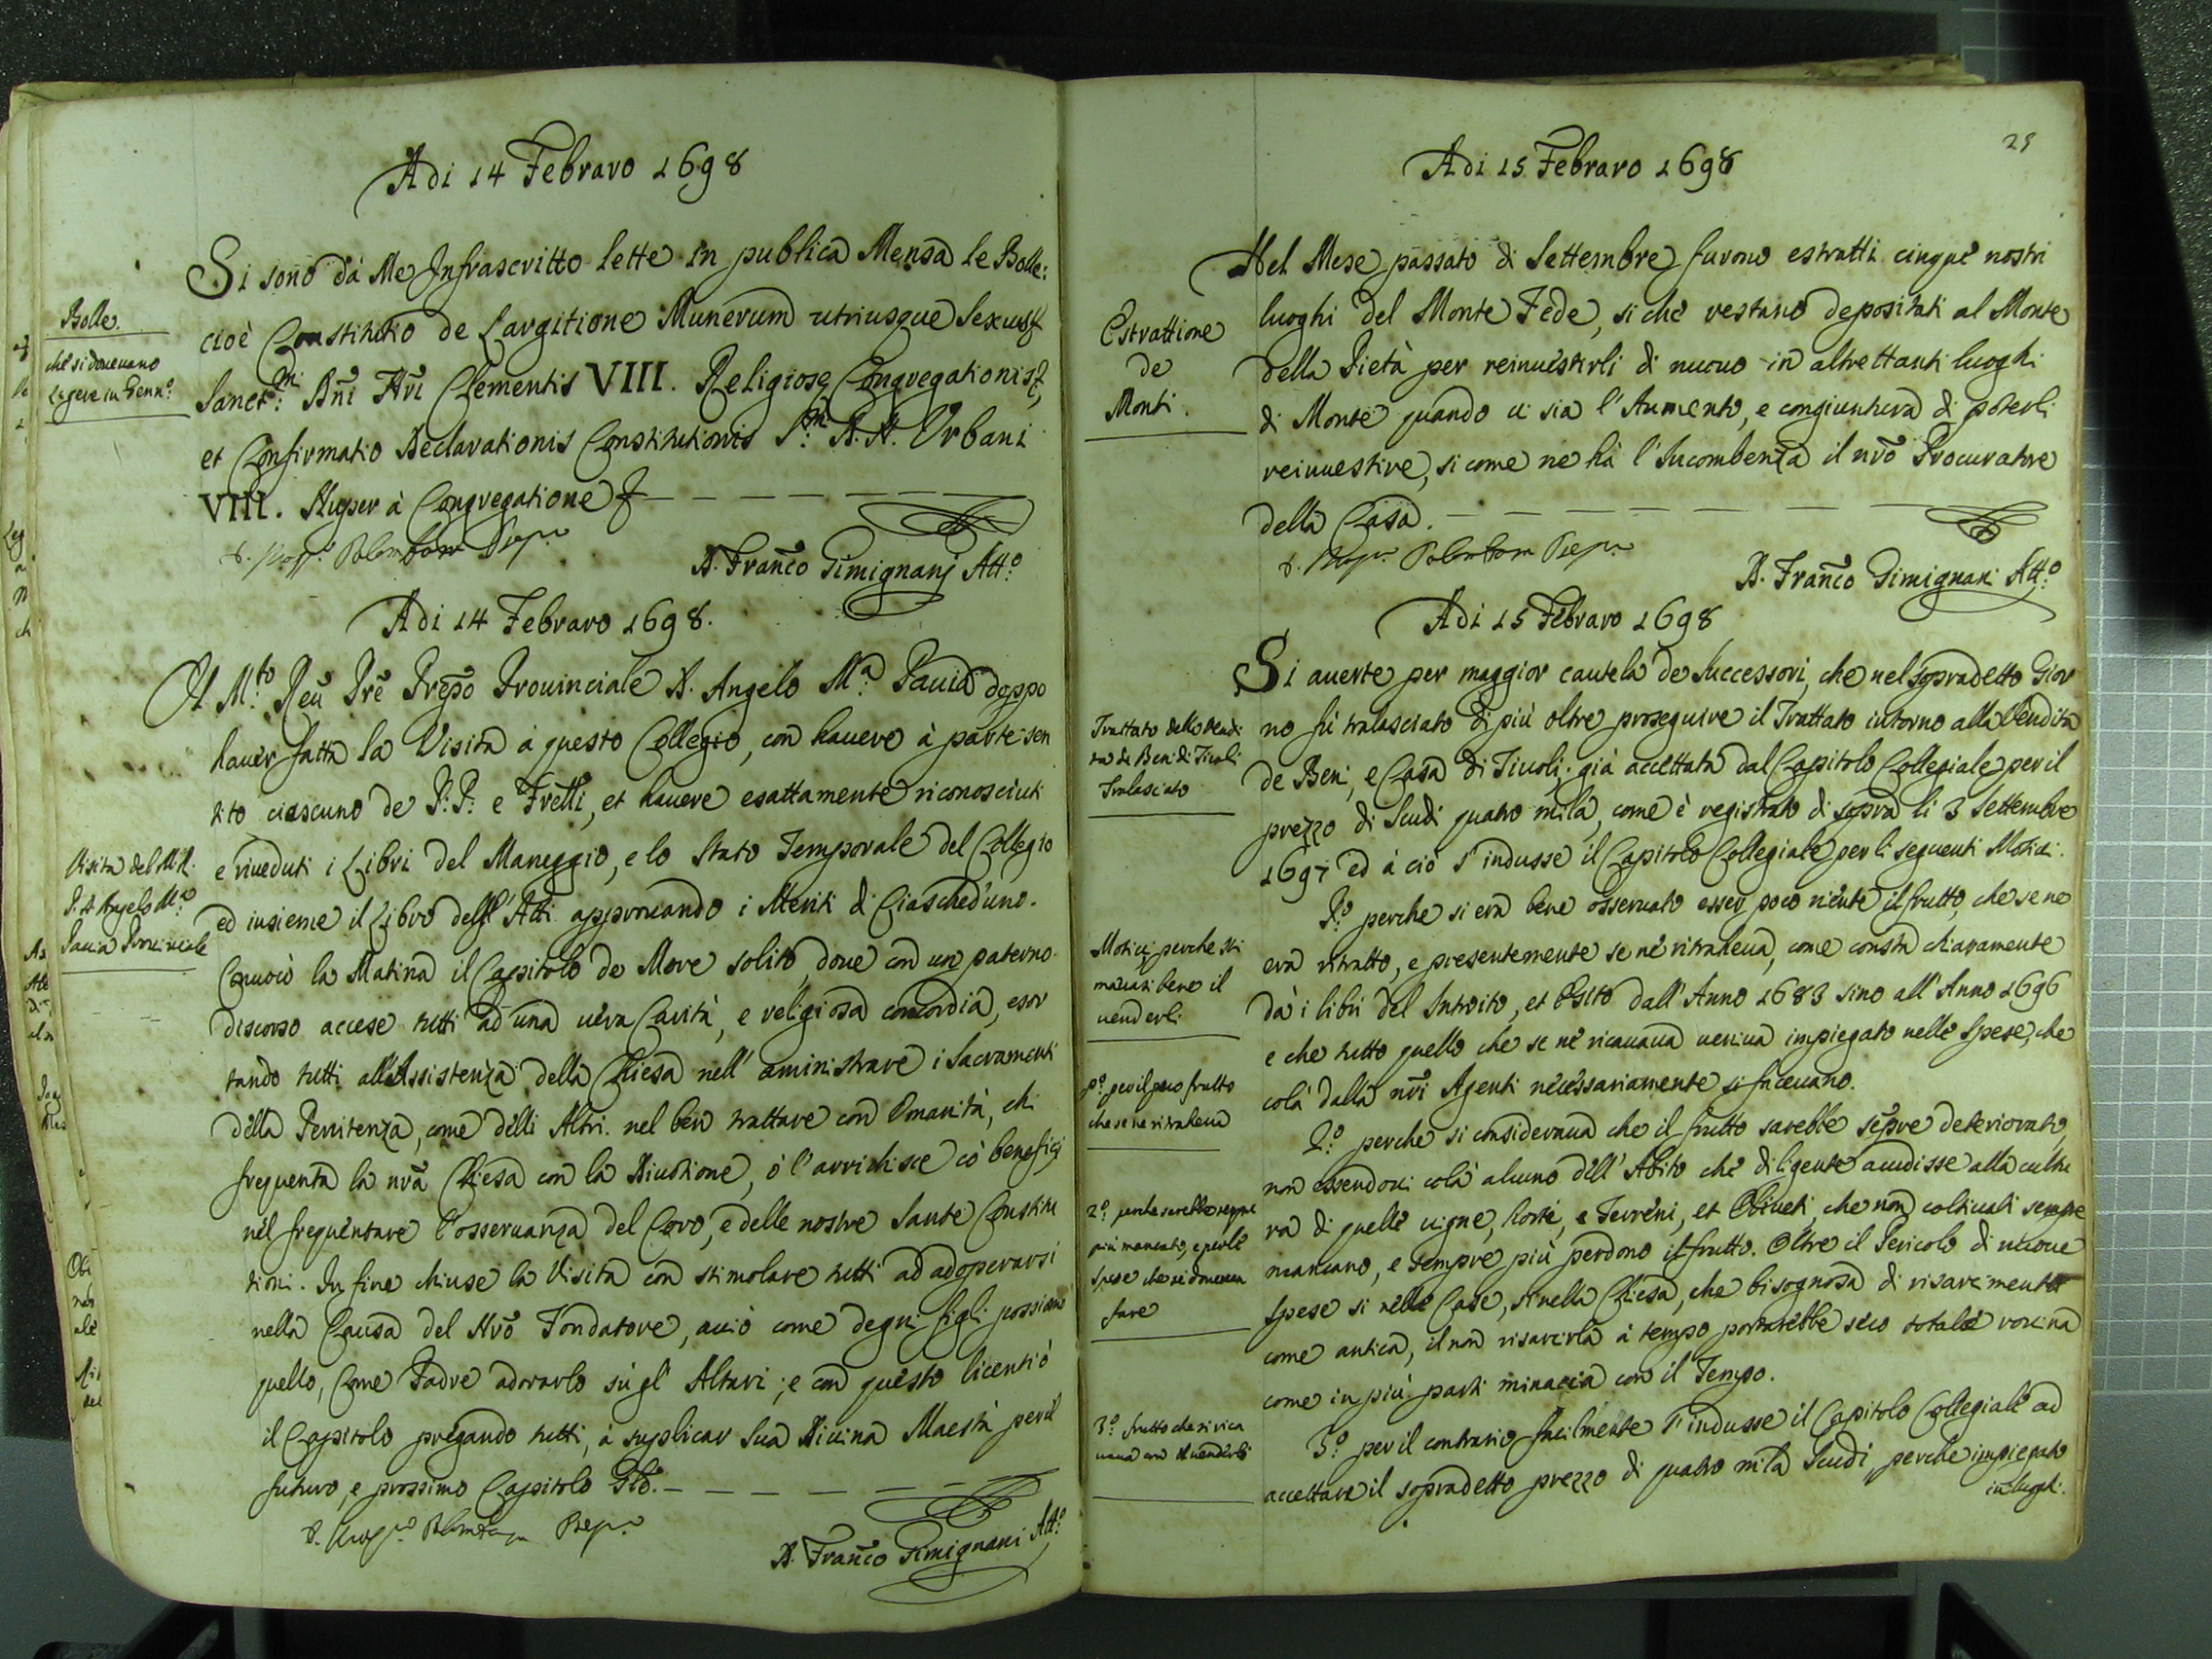 Adi 14 Febraro 1698
Si sono dà Me Infrascritto lette in publica Mensa le Bolle:
Bolle.
che si doueuano
legere in Genn.o
cioè Constitutio de Largitione Munerum utriusque Sexus &
Sanct.mi Dñi Nři Clementis VIII. Religiosę Congregationis &,
et Confirmatio Declarationis Constitutionis S.mi D. N. Urbani
VIII. Nuper à Congregatione &
D. Franco Gimignani Att.o
Adi 14 Febraro 1698.
Il M.to Reu Pre Prepo Prouinciale D. Angelo M.a Pauia doppo
hauer fatta la Visita à questo Collegio, con hauere à parte sen
tito ciascuno de P.P: e Frelli, et hauere esattamente riconosciuti
e riueduti i Libri del Maneggio, e lo Stato Temporale del Collegio
Visita del M.R.
P. D. Angelo M.a
Pauia Prouinciale
ed insieme il Libro dell' Atti approuando i Meriti di Ciascheduno.
Conuocò la Matina il Capitolo de More solito, doue con un paterno
discorso accese tutti ad una uera Carità, e religiosa concordia, esor
tando tutti all'Assistenza della Chiesa nell' aministrare i Sacramenti
della Penitenza, come delli Altri. nel ben trattare con Omanità, chi
frequenta la nrã Chiesa con la Diuotione, ò l'arrichisce cõ beneficij
nel frequentare l'osseruanza del Coro, e delle nostre Sante Constitu
tioni. In fine chiuse la Visita con stimolare tutti ad adoperarsi
nella Causa del Nrõ Fondatore, acciò come degni figli possiamo
quello, Come Padre adorarlo sù gl' Altari; e con questo licentiò
il Capitolo pregando tutti, à suplicar Sua Diuina Maestà per il
futuro, e prossimo Capitolo Gle.
D. Franco Gimignani Att.o
25
Adi 15 Febraro 1698
Nel Mese passato di Settembre furono estratti cinque nostri
luoghi del Monte Fede, si che restano depositati al Monte
Estrattione
de
Monti.
della Pietà per reinuestirli di nuouo in altrettanti luoghi
di Monte quando ui sia l'Aumento, e congiuntura di poterli
reinuestire, si come ne hà l'Incombenza il nrõ Procuratore
della Casa.
D. Franco Gimignani Att.o
Adi 15 Febraro 1698
Si auerte per maggior cautela de Successori, che nel sopradetto Gior
no fù tralasciato di più oltre proseguire il Trattato intorno alla Vendita
Trattato della Vendi
ta de Beni di Tiuoli
Tralasciato
de Beni, e Casa di Tiuoli, già accettata dal Capitolo Collegiale per il
prezzo di Scudi quatro mila, come è registrato di sopra li 3 Settembre
1697 ed à ciò s'indusse il Capitolo Collegiale per li seguenti Motiui.
P.o perche si era bene osseruato esser poco niente il frutto, che se ne
Motiui perche sti
mauasi bene il
uenderli
era ritratto, e presentemente se ne ritraheua, come consta chiaramente
dà i libri del Introito, et Esito dall'Anno 1683 sino all'Anno 1696
e che tutto quello che se ne ricauaua ueniua impiegato nelle Spese, che
P.o per il poco frutto
che se ne ritraheua
colà dalla nri Agenti necessariamente si faceuano.
2.o perche si consideraua che il frutto sarebbe sẽpre deteriorato,
non essendoui colà alcuno dell' Abito che diligente accudisse alla cultu
ra di quelle uigne, Horti, e Terreni, et Oliueti, che non coltiuati sempre
2.o perche sarebbe sempre
più mancato, e per le
Spese che si doueua
fare
mancano, e sempre più perdono il frutto. Oltre il Pericolo di nuoue
spese si nelle Case, si nella Chiesa, che bisognosa di risarcimento
come antica, il non risarcirla à tempo portarebbe seco totale rouina
come in più parti minaccia con il Tempo.
3.o frutto che si rica
uaua con il uenderli
3.o per il contrario facilmente s'indusse il Capitolo Collegiale ad
accettare il sopradetto prezzo di quatro mila Scudi, perche impiegato
in luoghi.